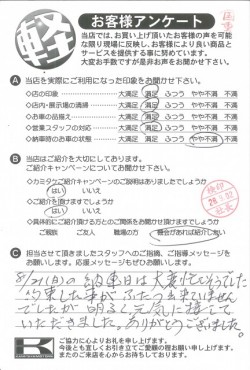 軽
お客様アンケート
当店では、お買い上げ頂いたお客様の声を可能
な限り現場に反映し、お客様により良い商品と
サービスを提供する事に努めています。
大変お手数ですが是非お声をお聞かせ下さい。
A 当店を実際にご利用になった印象をお聞かせ下さい。
◇店の印象 大満足 満足 ふつう やや不満 不満
◇店内・展示場の清掃 大満足 満足 ふつう やや不満 不満
◇お車の品揃え 大満足 満足 ふつう やや不満 不満
◇営業スタッフの対応 大満足 満足 ふつう やや不満 不満
◇納車時のお車の状態 大満足 満足 ふつう やや不満 不満
B 当店はご紹介を大切にしております。
ご紹介キャンペーンについてお聞かせ下さい。
◇カミタケご紹介キャンペーンのご説明はありましたでしょうか
はい いいえ
◇ご紹介を頂けますでしょうか
はい いいえ
◇具体的にご紹介頂ける方とのご関係をお聞かせ頂けますでしょうか
ご親族 ご友人 職場の方 機会があれば紹介したい
C 担当させて頂きましたスタッフへのご指摘、ご指導メッセージを
お願いします。応援メッセージもぜひお願いします。
8/21(日)の納車日は大変けでどうでした
約束した事がふたつ出来ていません
でしたが明るく元気に接して
いただきました。ありがとうございました。
K
ご協力に心よりお礼を申し上げます。
今後とも宜しくお引き立てご愛顧の程お願い申し上げます。
またのご来店を心からお待ちしております。